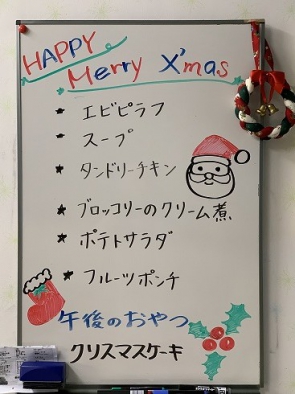 HAPPY
Merry X'mas
★ エビピラフ
★ スープ
★ タンドリーチキン
★ ブロッコリーのクリーム煮
★ ポテトサラダ
★ フルーツポンチ
午後のおやつ
クリスマスケーキ